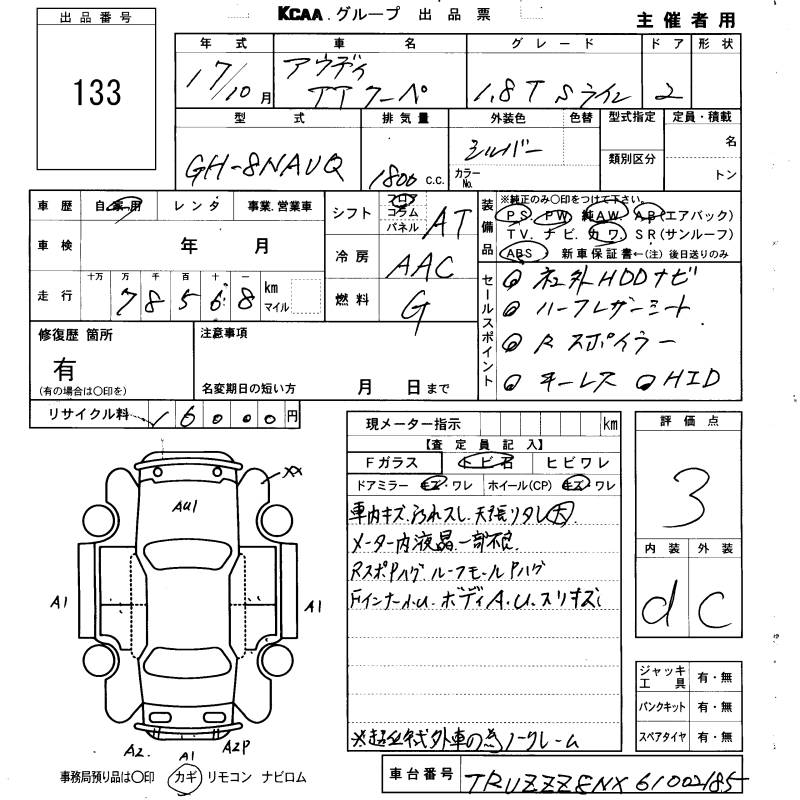 出品番号
133
KCAA グループ 出品票
主催者用
年式 車名 グレード ドア 形状
17/10月 アウディ TTクーペ 1.8T Sライン 2
型式 排気量 外装色 色替 型式指定 定員・積載
GH-8NAUQ 1800 c.c. シルバー カラーNo. 類別区分 名 トン
車歴 自家用 レンタ 事業.営業車
車検 年 月
走行 十万 万 千 百 十 一 km マイル
78568
シフト フロア コラム パネル AT
冷房 AAC
燃料 G
装備品 ※純正のみ〇印をつけて下さい。
PS. PW. 純AW. AB(エアバック)
TV. ナビ. カワ. SR(サンルーフ)
ABS. 新車保証書←(注)後日送りのみ
セールスポイント
社外HDDナビ
ハーフレザーシート
Rスポイラー
キーレス HID
修復歴 箇所
有
(有の場合は〇印を)
注意事項
名変期日の短い方 月 日まで
リサイクル料 6000円
現メーター指示 km
【査定員記入】
Fガラス トビ石 ヒビワレ
ドアミラー キズ・ワレ ホイール(CP) キズ・ワレ
車内キズ.汚れスレ.天張リタレ大
メーター内液晶.一部不良.
RスポPハゲ ルーフモールPハゲ
FインナーA.U. ボディA.U.スリキズ
※超低年式外車の為ノークレーム
評価点
3
内装 外装
d C
ジャッキ工具 有・無
パンクキット 有・無
スペアタイヤ 有・無
XX
AU1
A1
A1
A2 A1 A2P
事務局預り品は〇印 カギ リモコン ナビロム
車台番号 TRUZZZ8NX61002185